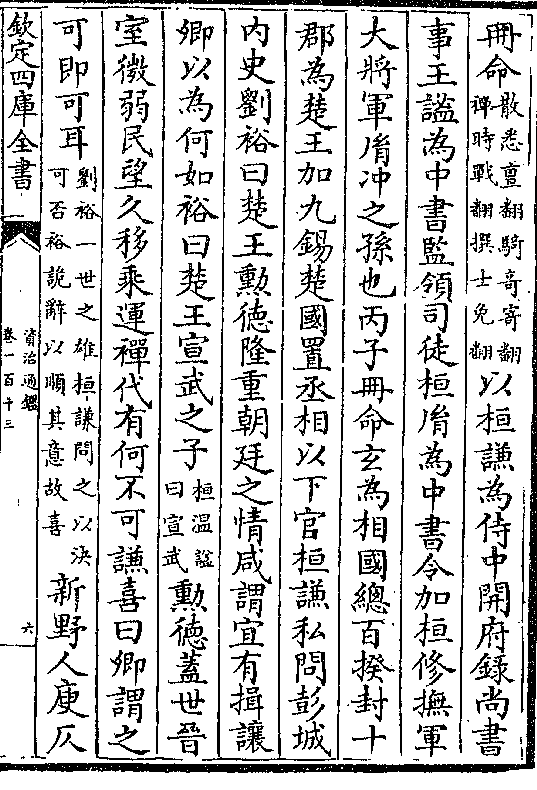 冊命散悉亶翻騎奇寄翻
禪時戰翻撰士免翻以桓謙為侍中開府錄尚書
事王謐為中書監領司徒桓胤為中書令加桓修撫軍
大將軍胤冲之孫也丙子冊命玄為相國總百揆封十
郡為楚王加九錫楚國置丞相以下官桓謙私問彭城
内史劉裕曰楚王勲德隆重朝廷之情咸謂宜有揖讓
卿以為何如裕曰楚王宣武之子桓温謚
曰宣武勲德蓋世晉
室微弱民望久移乘運禪代有何不可謙喜曰卿謂之
可即可耳劉裕一世之雄桓謙問之以決
可否裕詭辭以順其意故喜新野人庾仄
欽定四庫全書
資治通鑑
卷一百十三
六